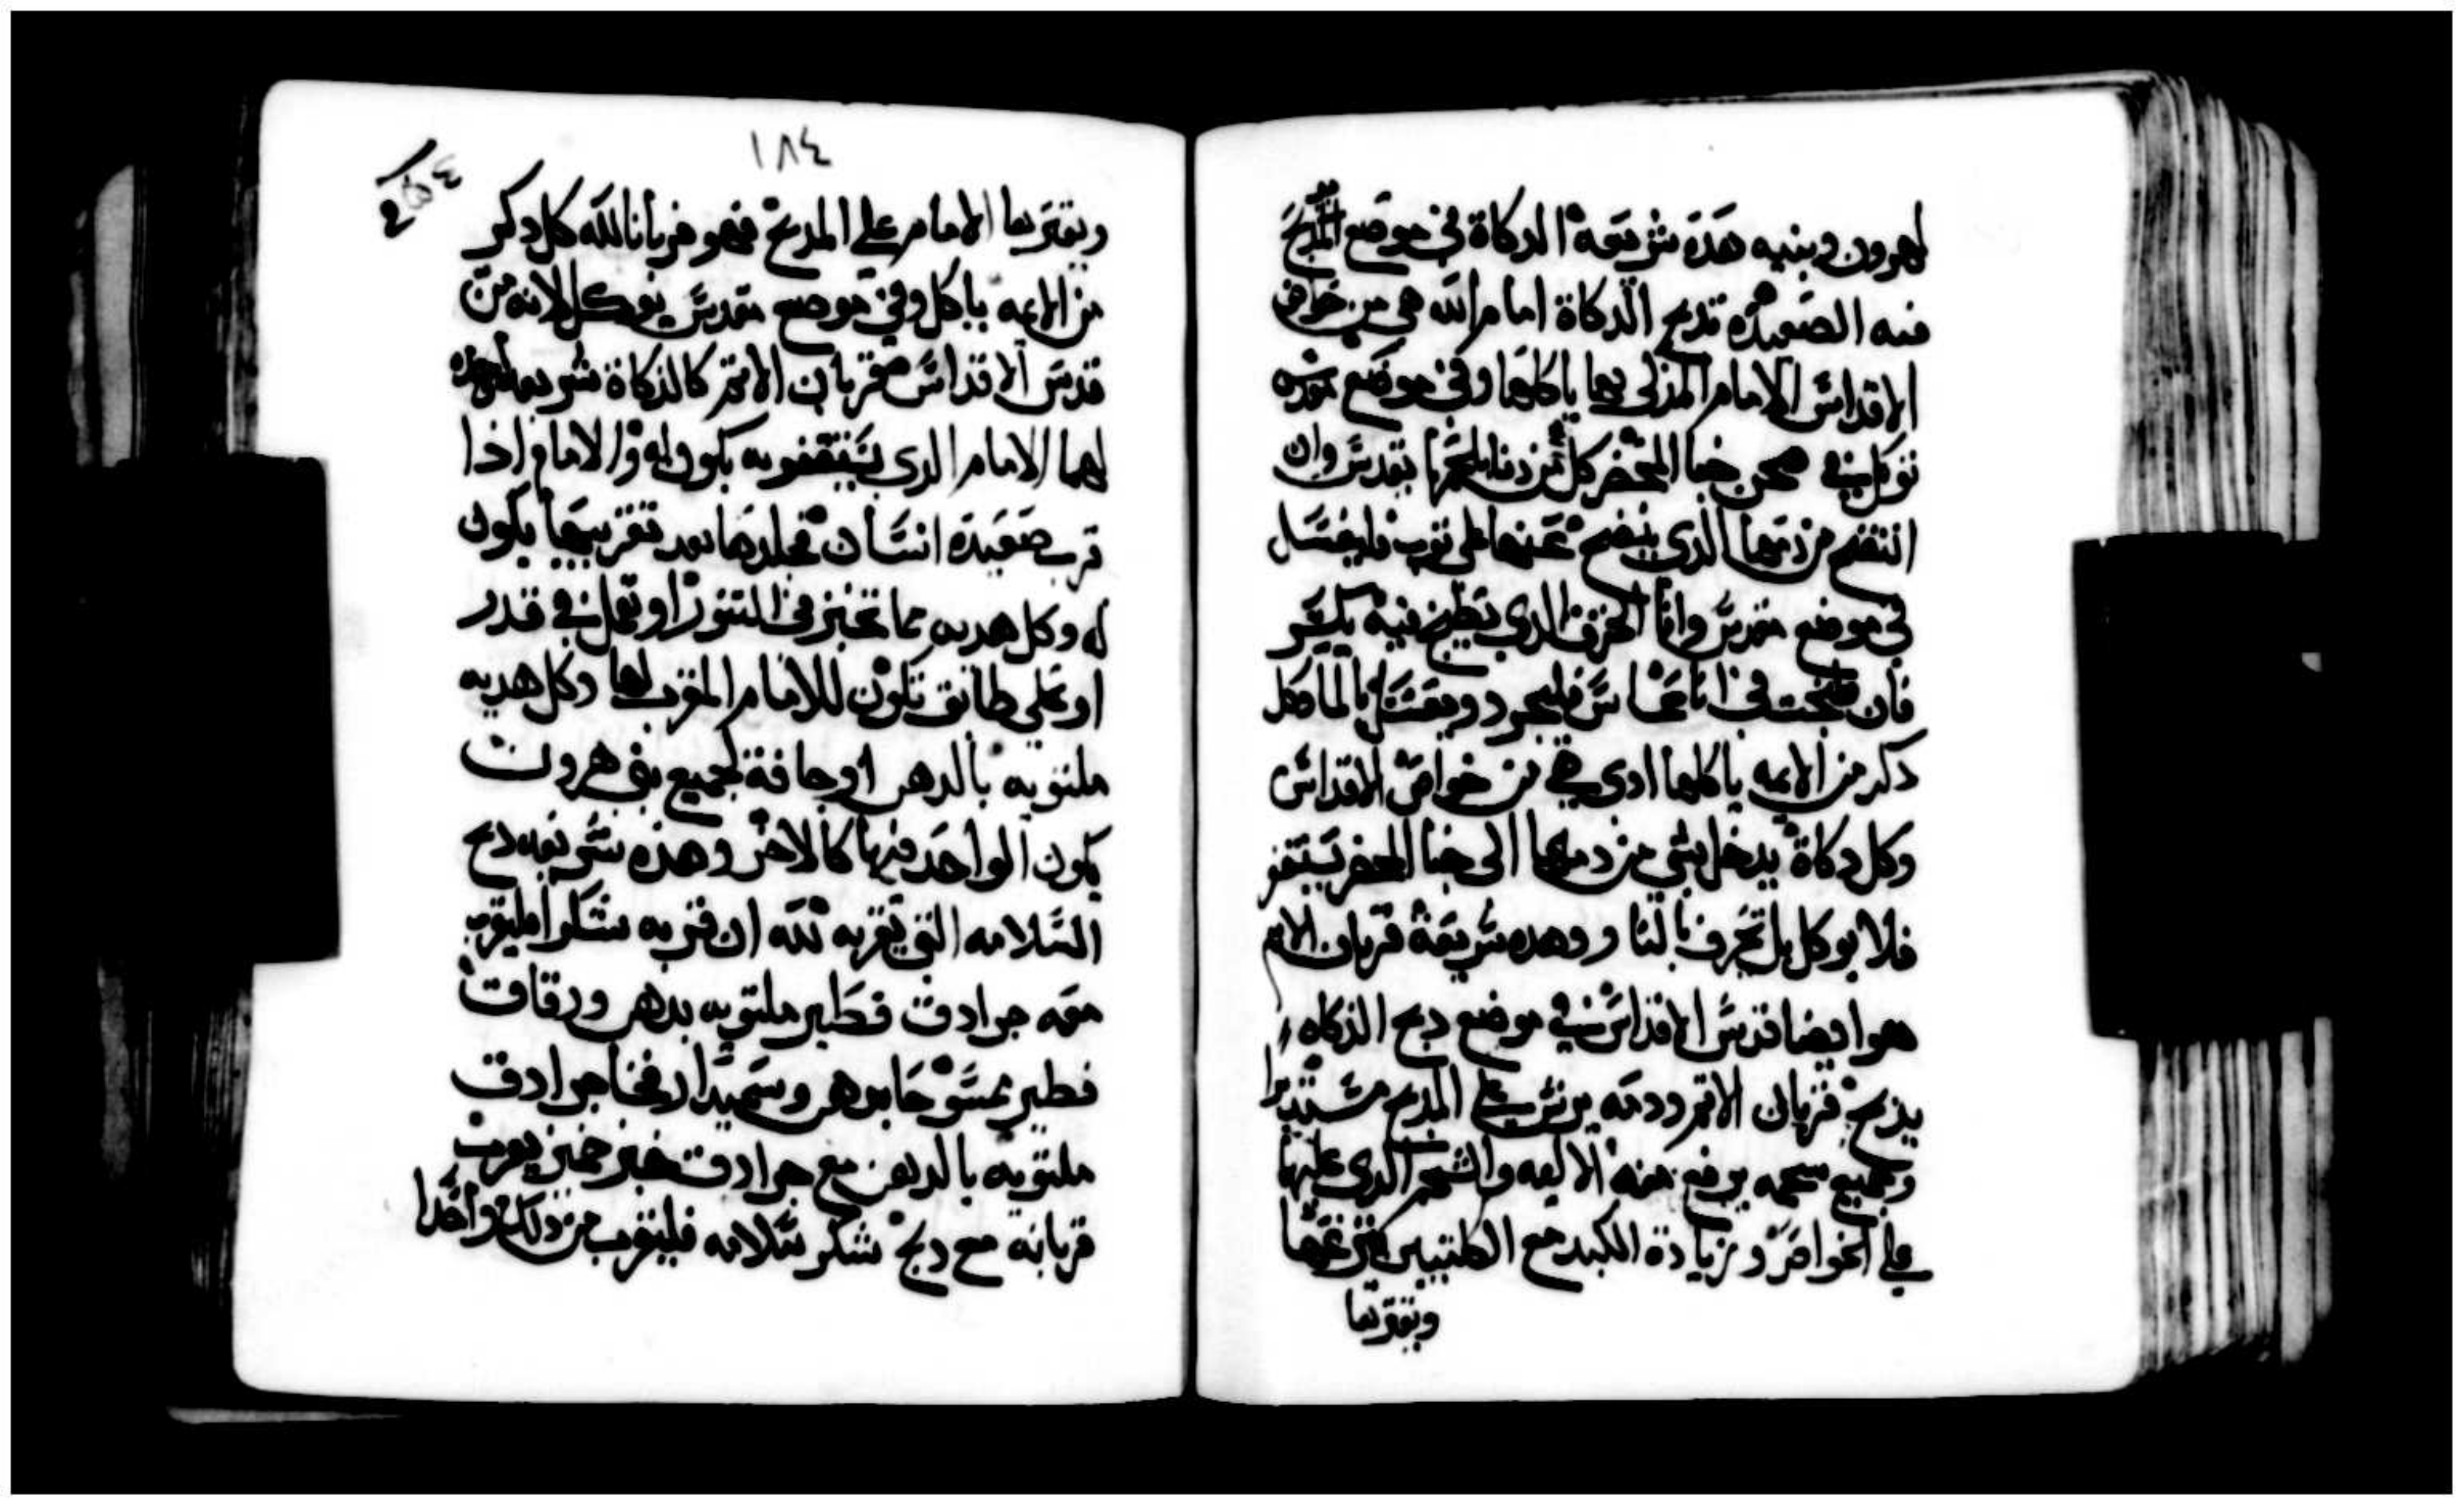 لهرون وبنيه هذه شريعة الدكاة في موضع المذبح
فيه الصعيده تدبح الدكاة امام الله هي من خواص
الاقداس الامام المذكي بها ياكلها وفي موضع مقدس
توكل في صحن خبا المحضر كل من دنا بلحمها يتقدس وان
انتضح من دمها الذي ينضح عنها على توب فليغسل
في موضع مقدس وانا الخزف الدي تطبخ فيه يكسر
فان طبخت في انا نحاس فليجرد ويغسل بالما وكل
دكر من الايمه ياكلها ادي هي من خواص الاقداس
وكل دكاة يدخل بشي من دمها الى خبا المحضر يستغفر
فلا يوكل بل تحرق بالنار وهده شريعة قربان الاتم
هو ايضا قدس الاقداس في موضع دبح الذكاه
يذبح قربان الاتم ودمه يرش على المدبح مستديرا
وجميع شحمه يرفع منه الاليه والشحم الدي عليها
على الخواصر وزيادة الكبد مع الكليتين ينزعها
ويقربها
١٨٤
ويقربها الامام على المدبح فهو قربانا لله كل دكر
من الايمه ياكل وفي موضع مقدس يوكل لانه من
قدس الاقداس قربان الاتم كالذكاة شريعه واحده
لهما الامام الدي يستغفر به يكون له والامام اذا
قرب صعيدة انسان فجلدها بعد تقريبها يكون
له وكل هديه مما تخبز في التنور او تعمل في قدر
او على طابق تكون للامام المقرب لها وكل هديه
ملتويه بالدهن او جافة لجميع بني هرون
يكون الواحد منها كالاخر وهذه شريعه دبح
السلامه التي يقربه لله ان قربه شكرا فليقرب
معه جرادق فطير ملتويه بدهن ورقاقت
فطير ممسوحا بدهن وسميدا رخفا جرادق
ملتويه بالدهن مع جرادق خبز خمير يقرب
قربانه مع دبح شكر سلامه فليقرب من ذلك واحدا